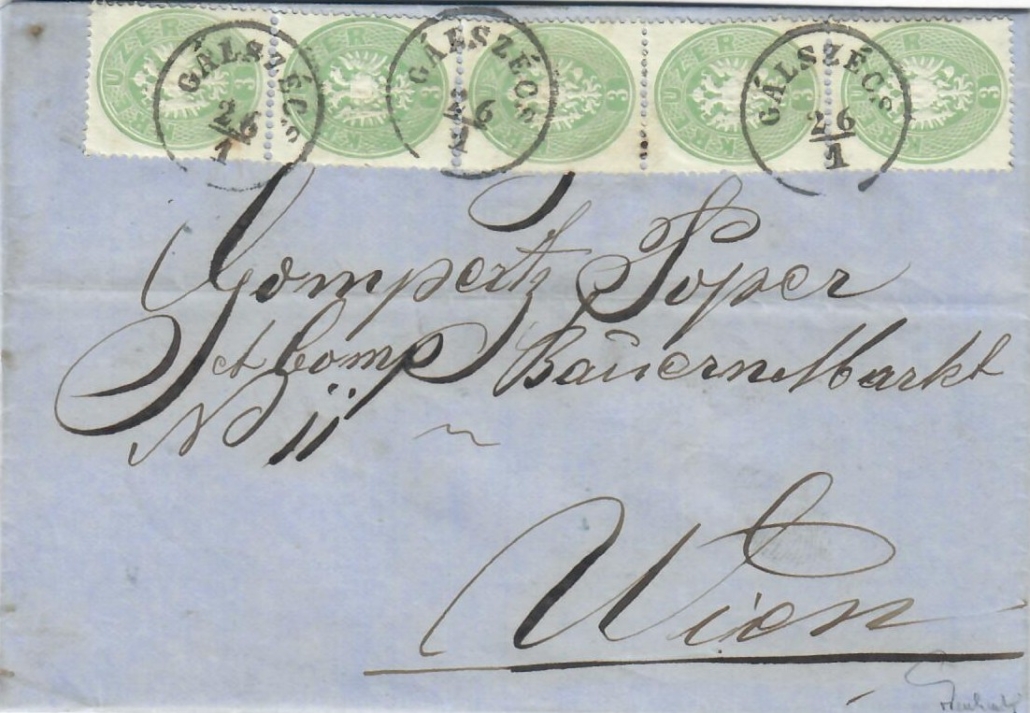 KREUZER 3 KREUZER 3 KREUZER 3 KREUZER 3 KREUZER 3
GÁLSZÉCS 26/1 GÁLSZÉCS 26/1 GÁLSZÉCS 26/1
Gompertz Soper
et Comp Bauern Markt
No 11
Wien